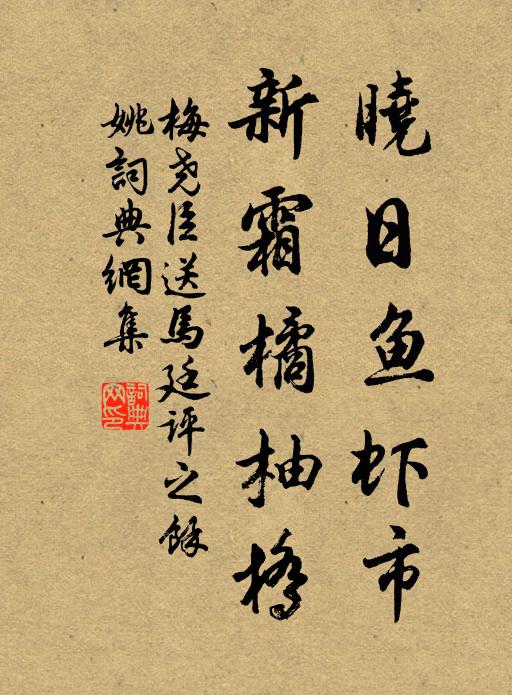 曉日鱼虾市
新霜橘柚橋
梅尧臣送馬廷评之餘
姚詞典網集
詞典
网印